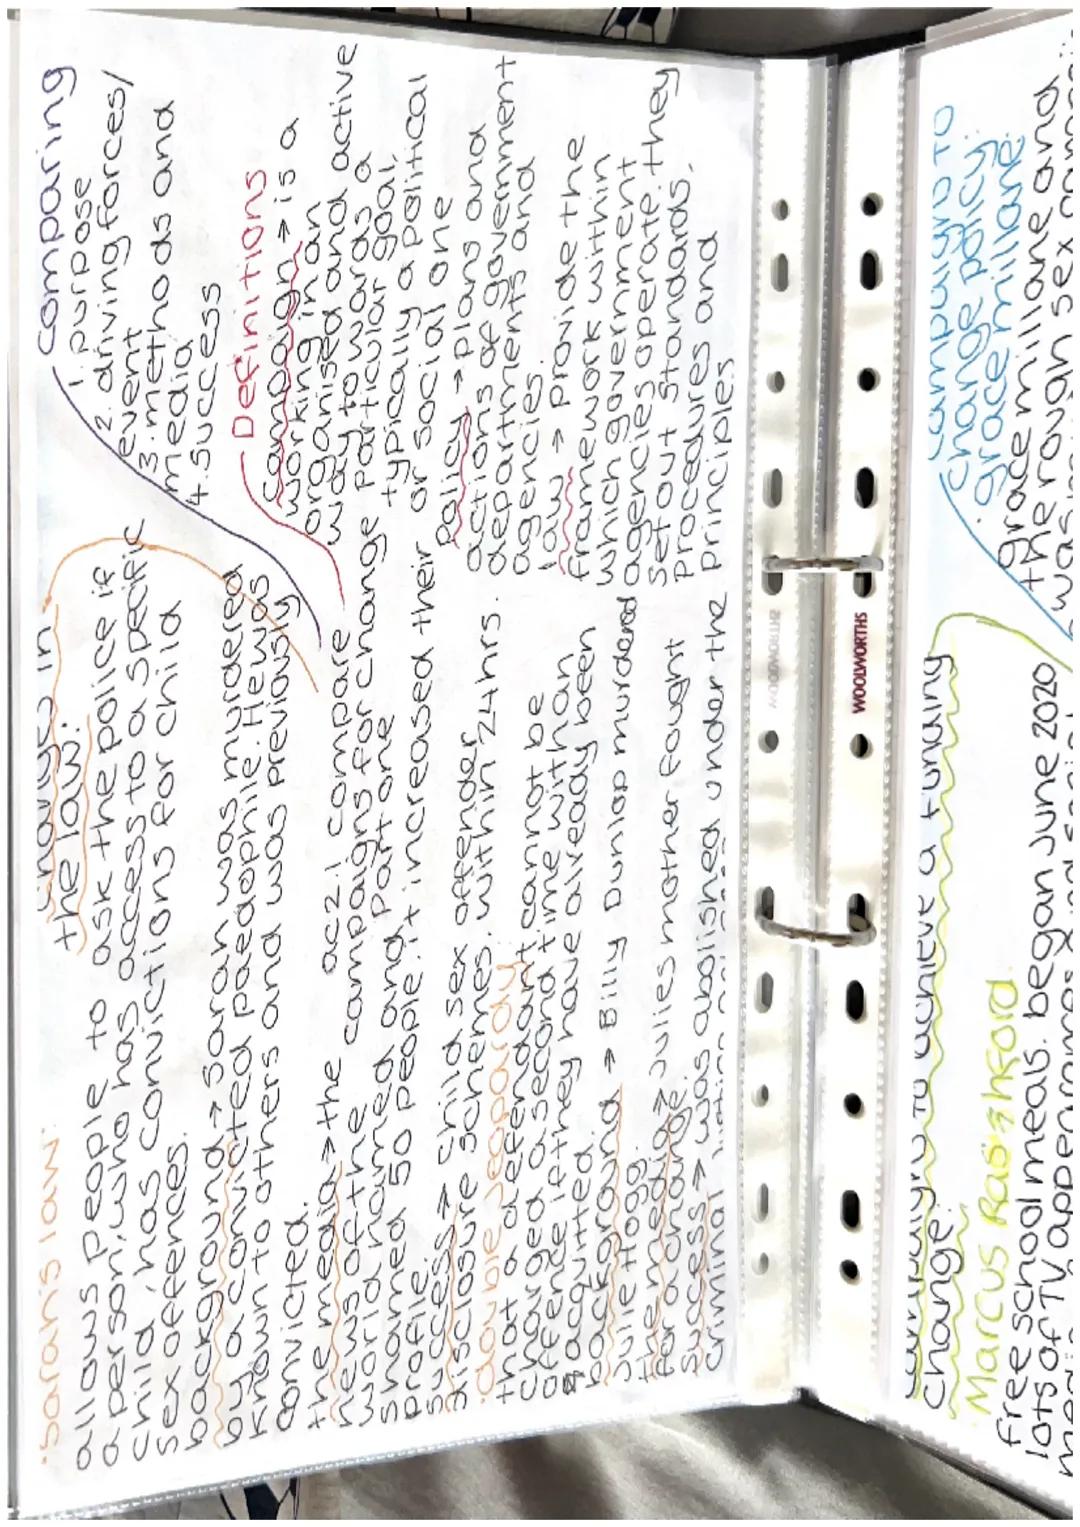 changes in
the law:
·sarah's law:
allows people to ask the police if
a person, who has access to a specific
child, has convictions for child
sex offences.
background → sarah was murdered
by a convicted paedophile. He was
known to others and was previously
convicted.
the media → the
news of the
world named and
shamed 50 people. it increased their
profile.
success → child sex offender
disclosure schemes. within 24hrs.
·double jeopardy
that a defendant cannot be
charged a second time with an
offence if they have already been
acquitted.
background → Billy Dunlop murdered
Julie Hogg.
the media → Julies mother fought
for change.
success → was abolished under the
criminal justice
ac2.1 compare
campaigns for change
Part one
comparing
1. purpose
2. driving forces/
event
3. methods and
media
4. success
Definitions
campaign → is a
working in an
organised and active
way to wards a
particular goal,
typically a political
or social one
policy → plans and
actions of government
departments and
agencies.
law → provide the
framework within
which government
agencies operate. they
set out standards,
procedures and
principles
WOOLWORTHS
WOOLWORTHS
campaign to achieve a funding
change:
·Marcus Rashford.
free school meals. began June 2020
lots of TV appearances and social
campaign to
change policy:
·grace millane:
grace millane and
the rough sex